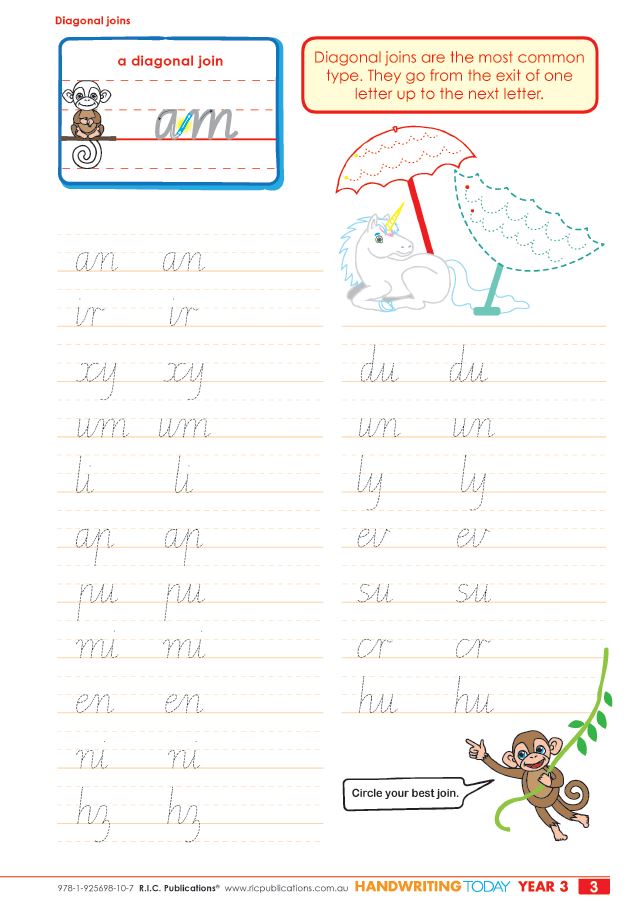 Diagonal joins
a diagonal join
am
Diagonal joins are the most common
type. They go from the exit of one
letter up to the next letter.
an an
ir ir
xy xy
um um
li li
ap ap
pu pu
mi mi
en en
ni ni
hz hz
du du
un un
ly ly
ev ev
su su
cr cr
hu hu
Circle your best join.
978-1-925698-10-7 R.I.C. Publications® www.ricpublications.com.au HANDWRITING TODAY YEAR 3 3